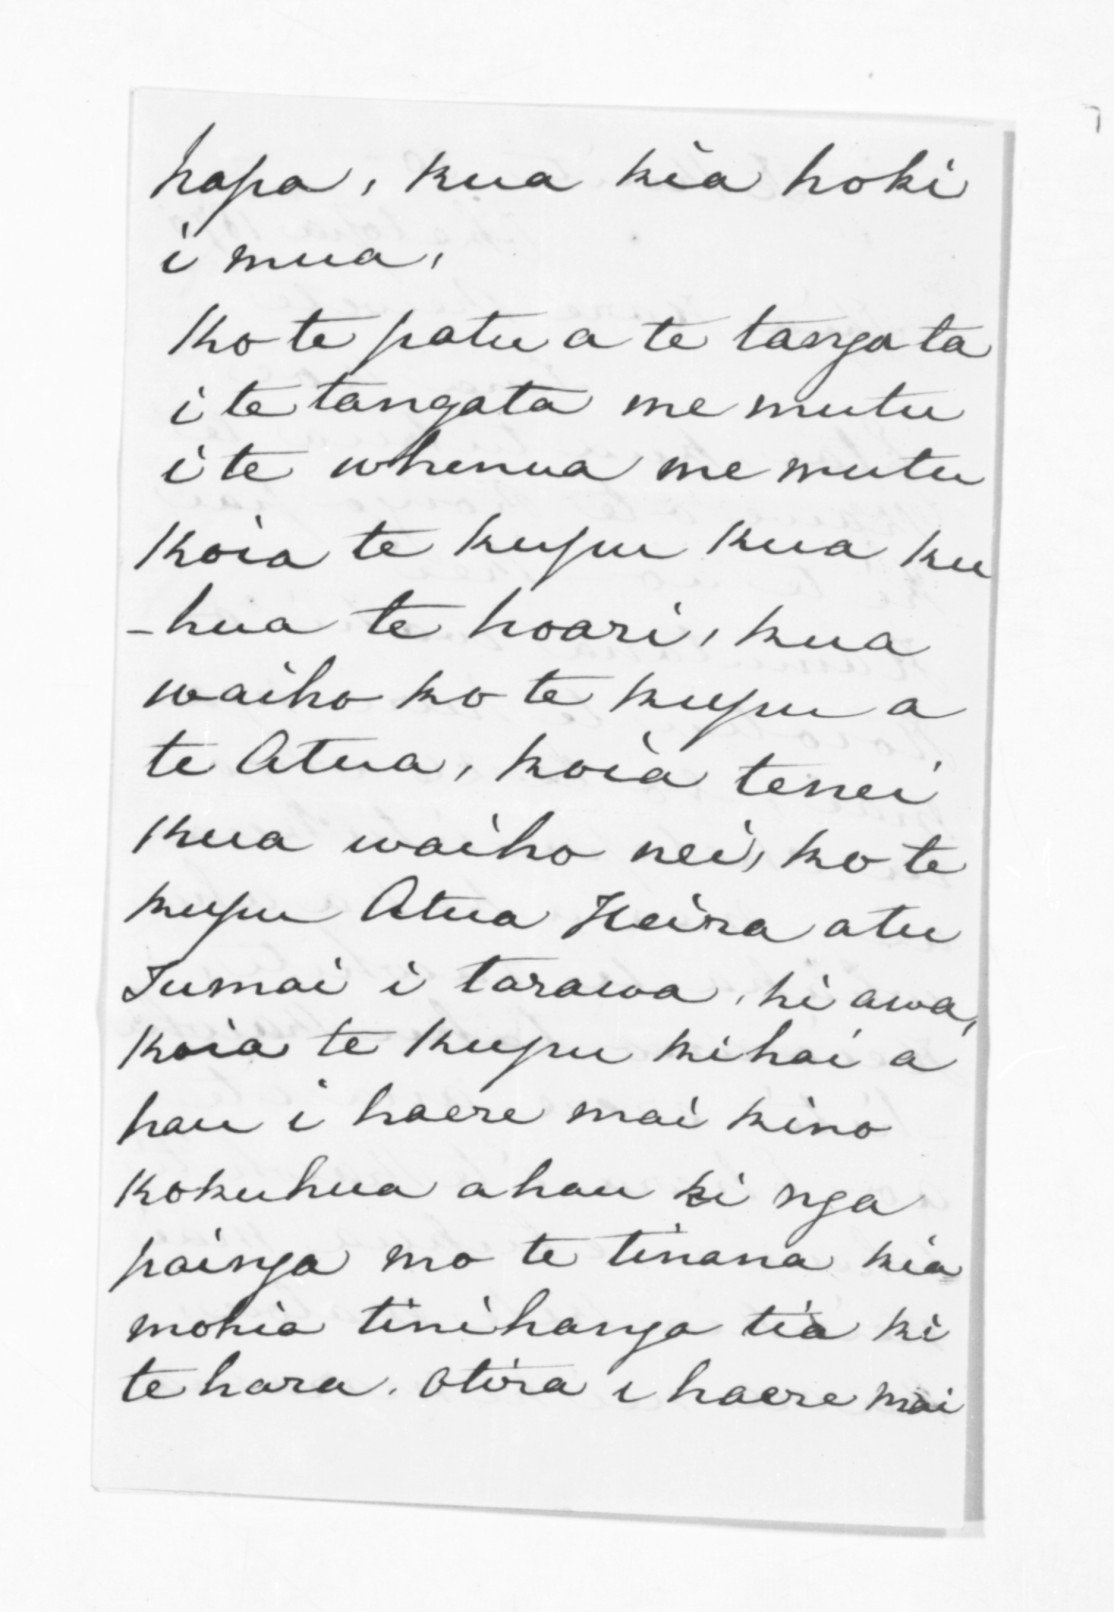 hapa, kua kia hoki
i mua,
Ko te patu a te tangata
i te tangata me mutu
i te whenua me mutu
koia te kupu kua ku
-hua te hoari, kua
waiho ko te kupu a
te Atua, koia tenei
kua waiho nei, ko te
kupu Atua Heira atu
Tumai i tarawa, hi awa,
koia te kupu kihai a
hau i haere mai kino
kokuhua ahau ki nga
painga mo te tinana kia
mohia tinihanga tia ki
te hara. Otira i haere mai